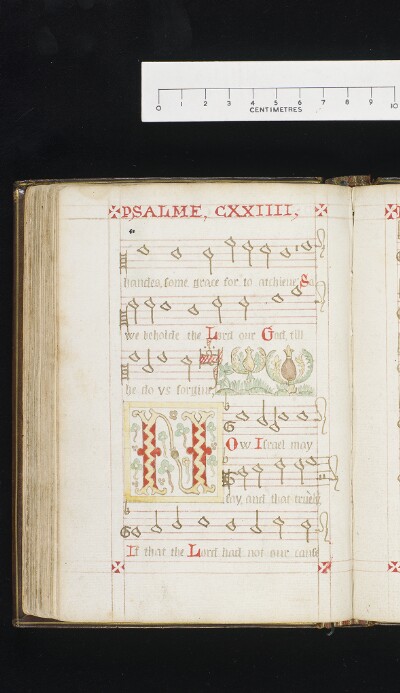 0 1 2 3 4 5 6 7 8 9 10
CENTIMETRES
PSALME, CXXIIII,
handes, some grace for to atchieue, So
we beholde the Lord our God, till
he do vs forgiue
NOw Israel may
say, and that truely,
If that the Lord had not our cause